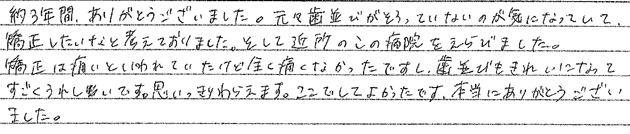 約3年間、ありがとうございました。元々歯並びがそろっていないのが気になっていて、
矯正したいなと考えておりました。そして近所のこの病院をえらびました。
矯正は痛いといわれていたけど全く痛くなかったですし、歯並びもきれいになって
すごくうれしいです。思いっきりわらえます。ここでしてよかったです。本当にありがとうござい
ました。